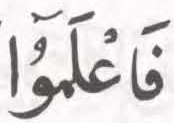 فَاعْلَمُوٓا